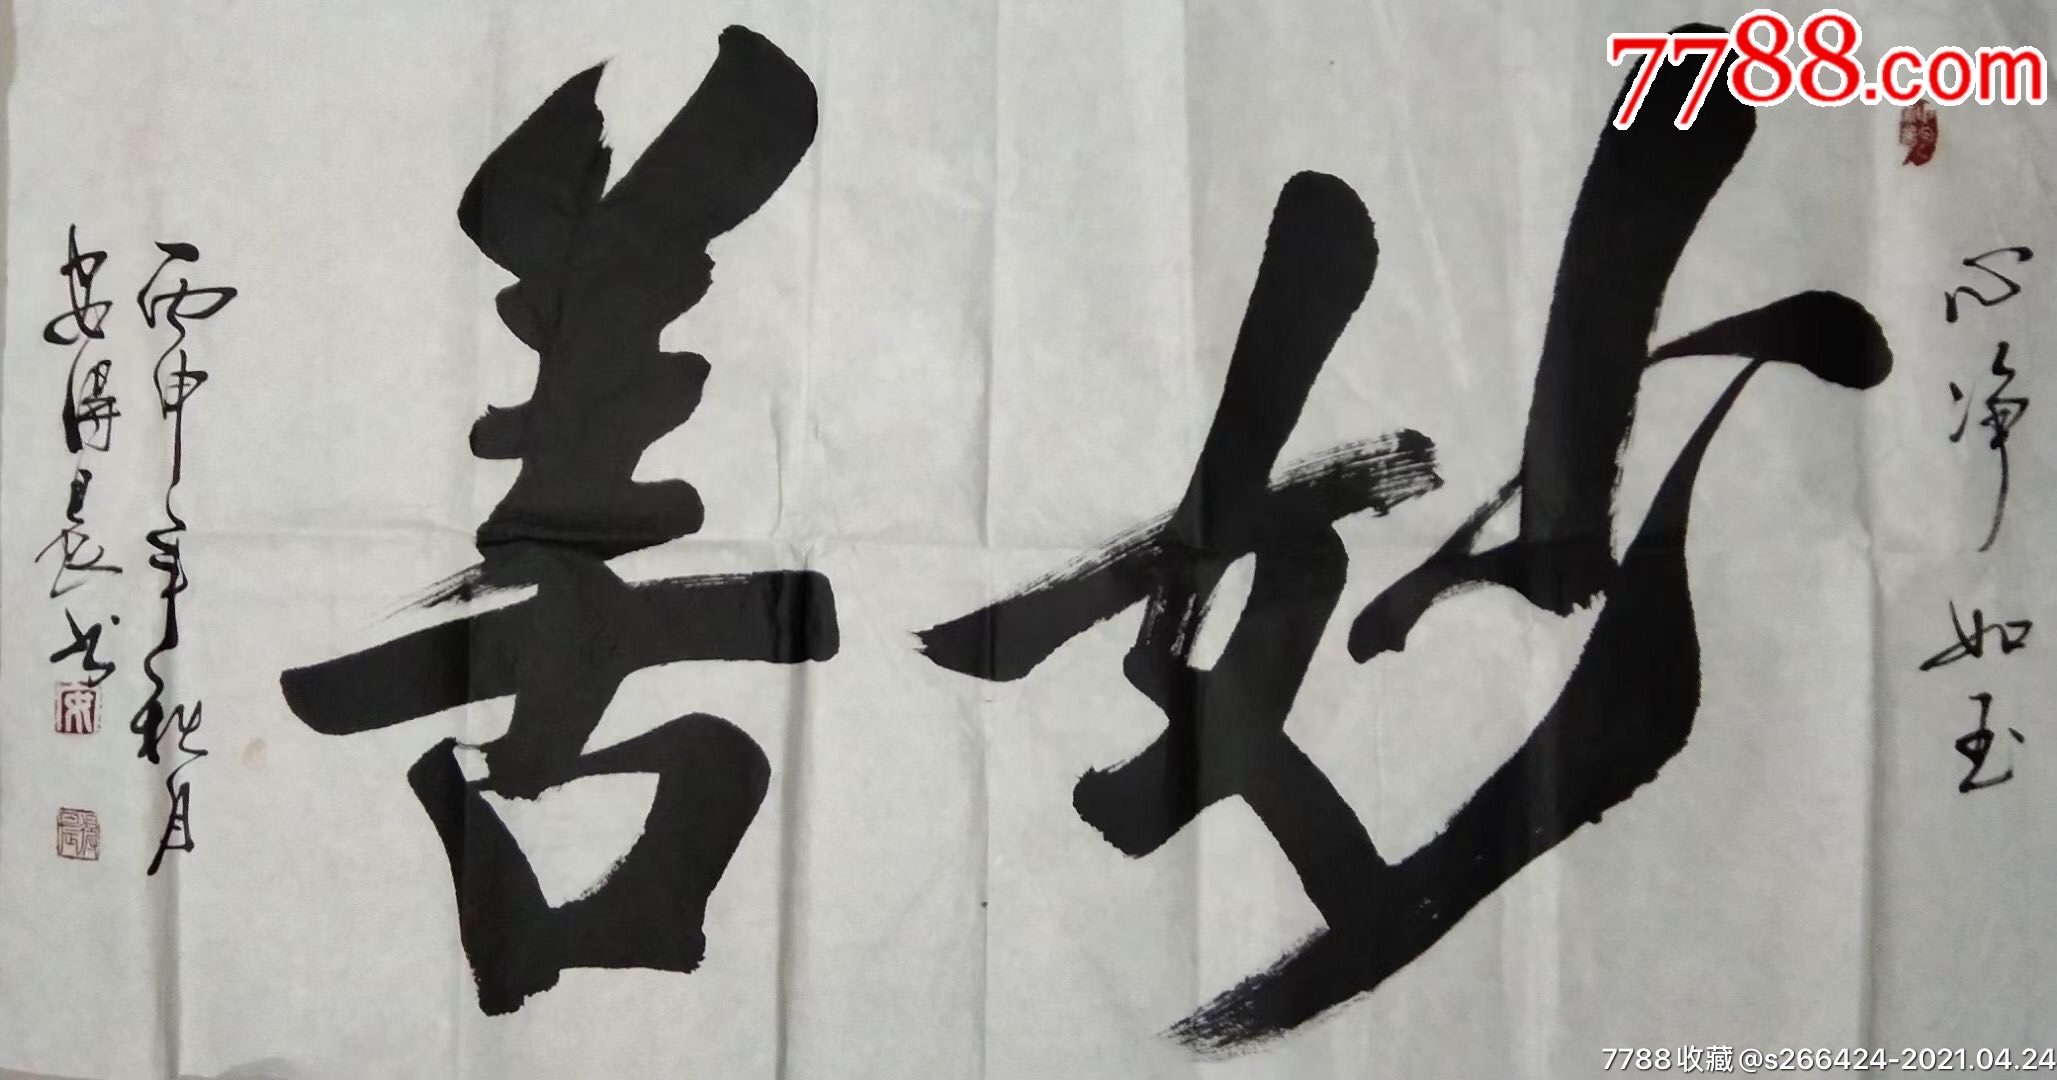 7788.com
心净如玉
妙善
丙申年秋月
安得长书
7788收藏@s266424-2021.04.24